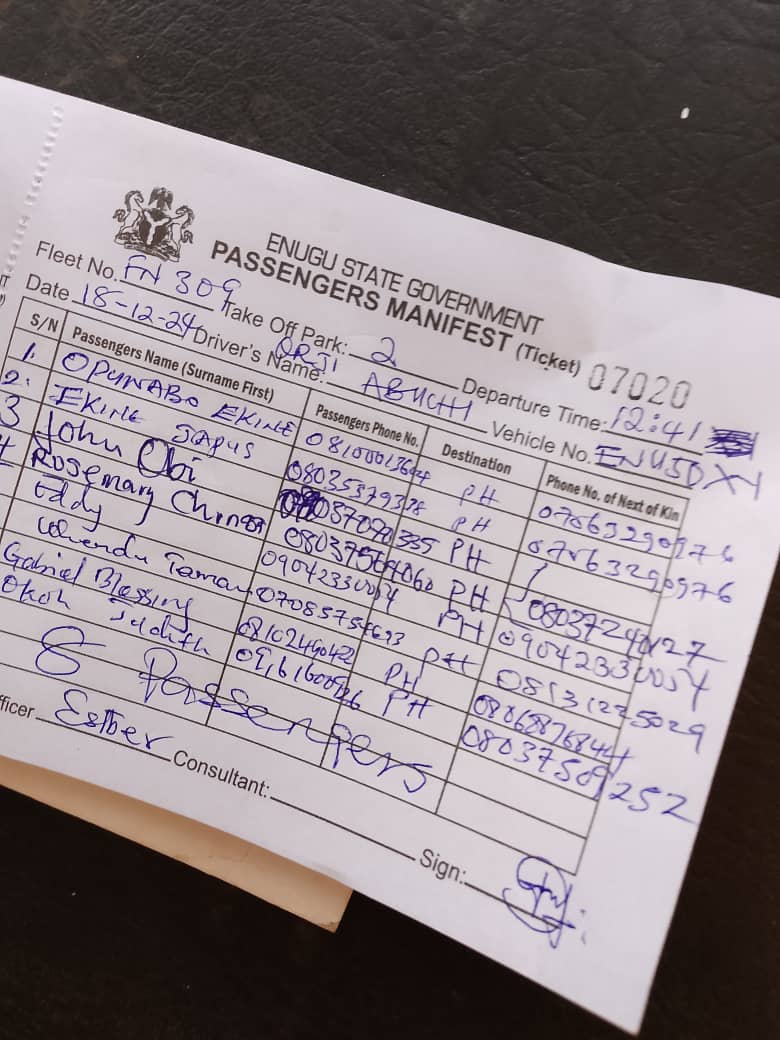 ENUGU STATE GOVERNMENT
PASSENGERS MANIFEST (Ticket) 07020
Fleet No. FN 309 Take Off Park: 2 Departure Time: 12:41
Date 18-12-24 Driver's Name: ORJI ABUCHI Vehicle No.
S/N Passengers Name (Surname First) Passengers Phone No. Destination Phone No. of Next of Kin
1. OPUNABO EKINE PH 07063290976
2. EKINE PH 07063290976
3 John Obi PH
4 Rosemary PH 08037240127
Eddy 09042330054 PH 09042330054
PH 08131225029
Gabriel Blessing PH
Okoh Judith PH 08037509252
8 Passengers
ficer Esther Consultant: Sign: